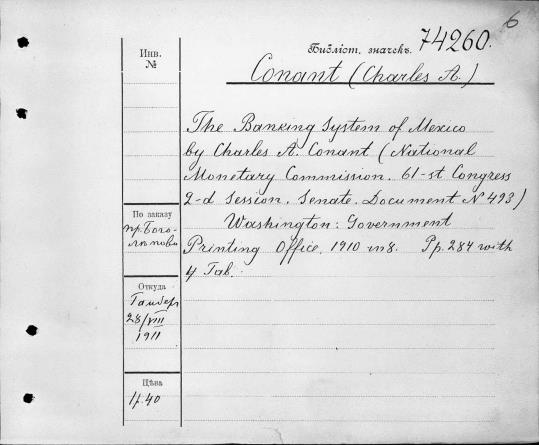 6
Библіот. значекъ 74260.
Инв.
№
Conant (Charles A.)
The Banking System of Mexico
by Charles A. Conant (National
Monetary Commission. 61-st Congress
2-d Session. Senate. Document N 493)
Washington: Government
Printing Office, 1910 in 8. Pp. 284 with
4 Tab.
По заказу
пр. Бого-
лѣпова
Откуда
28/VIII
1911
Цѣна